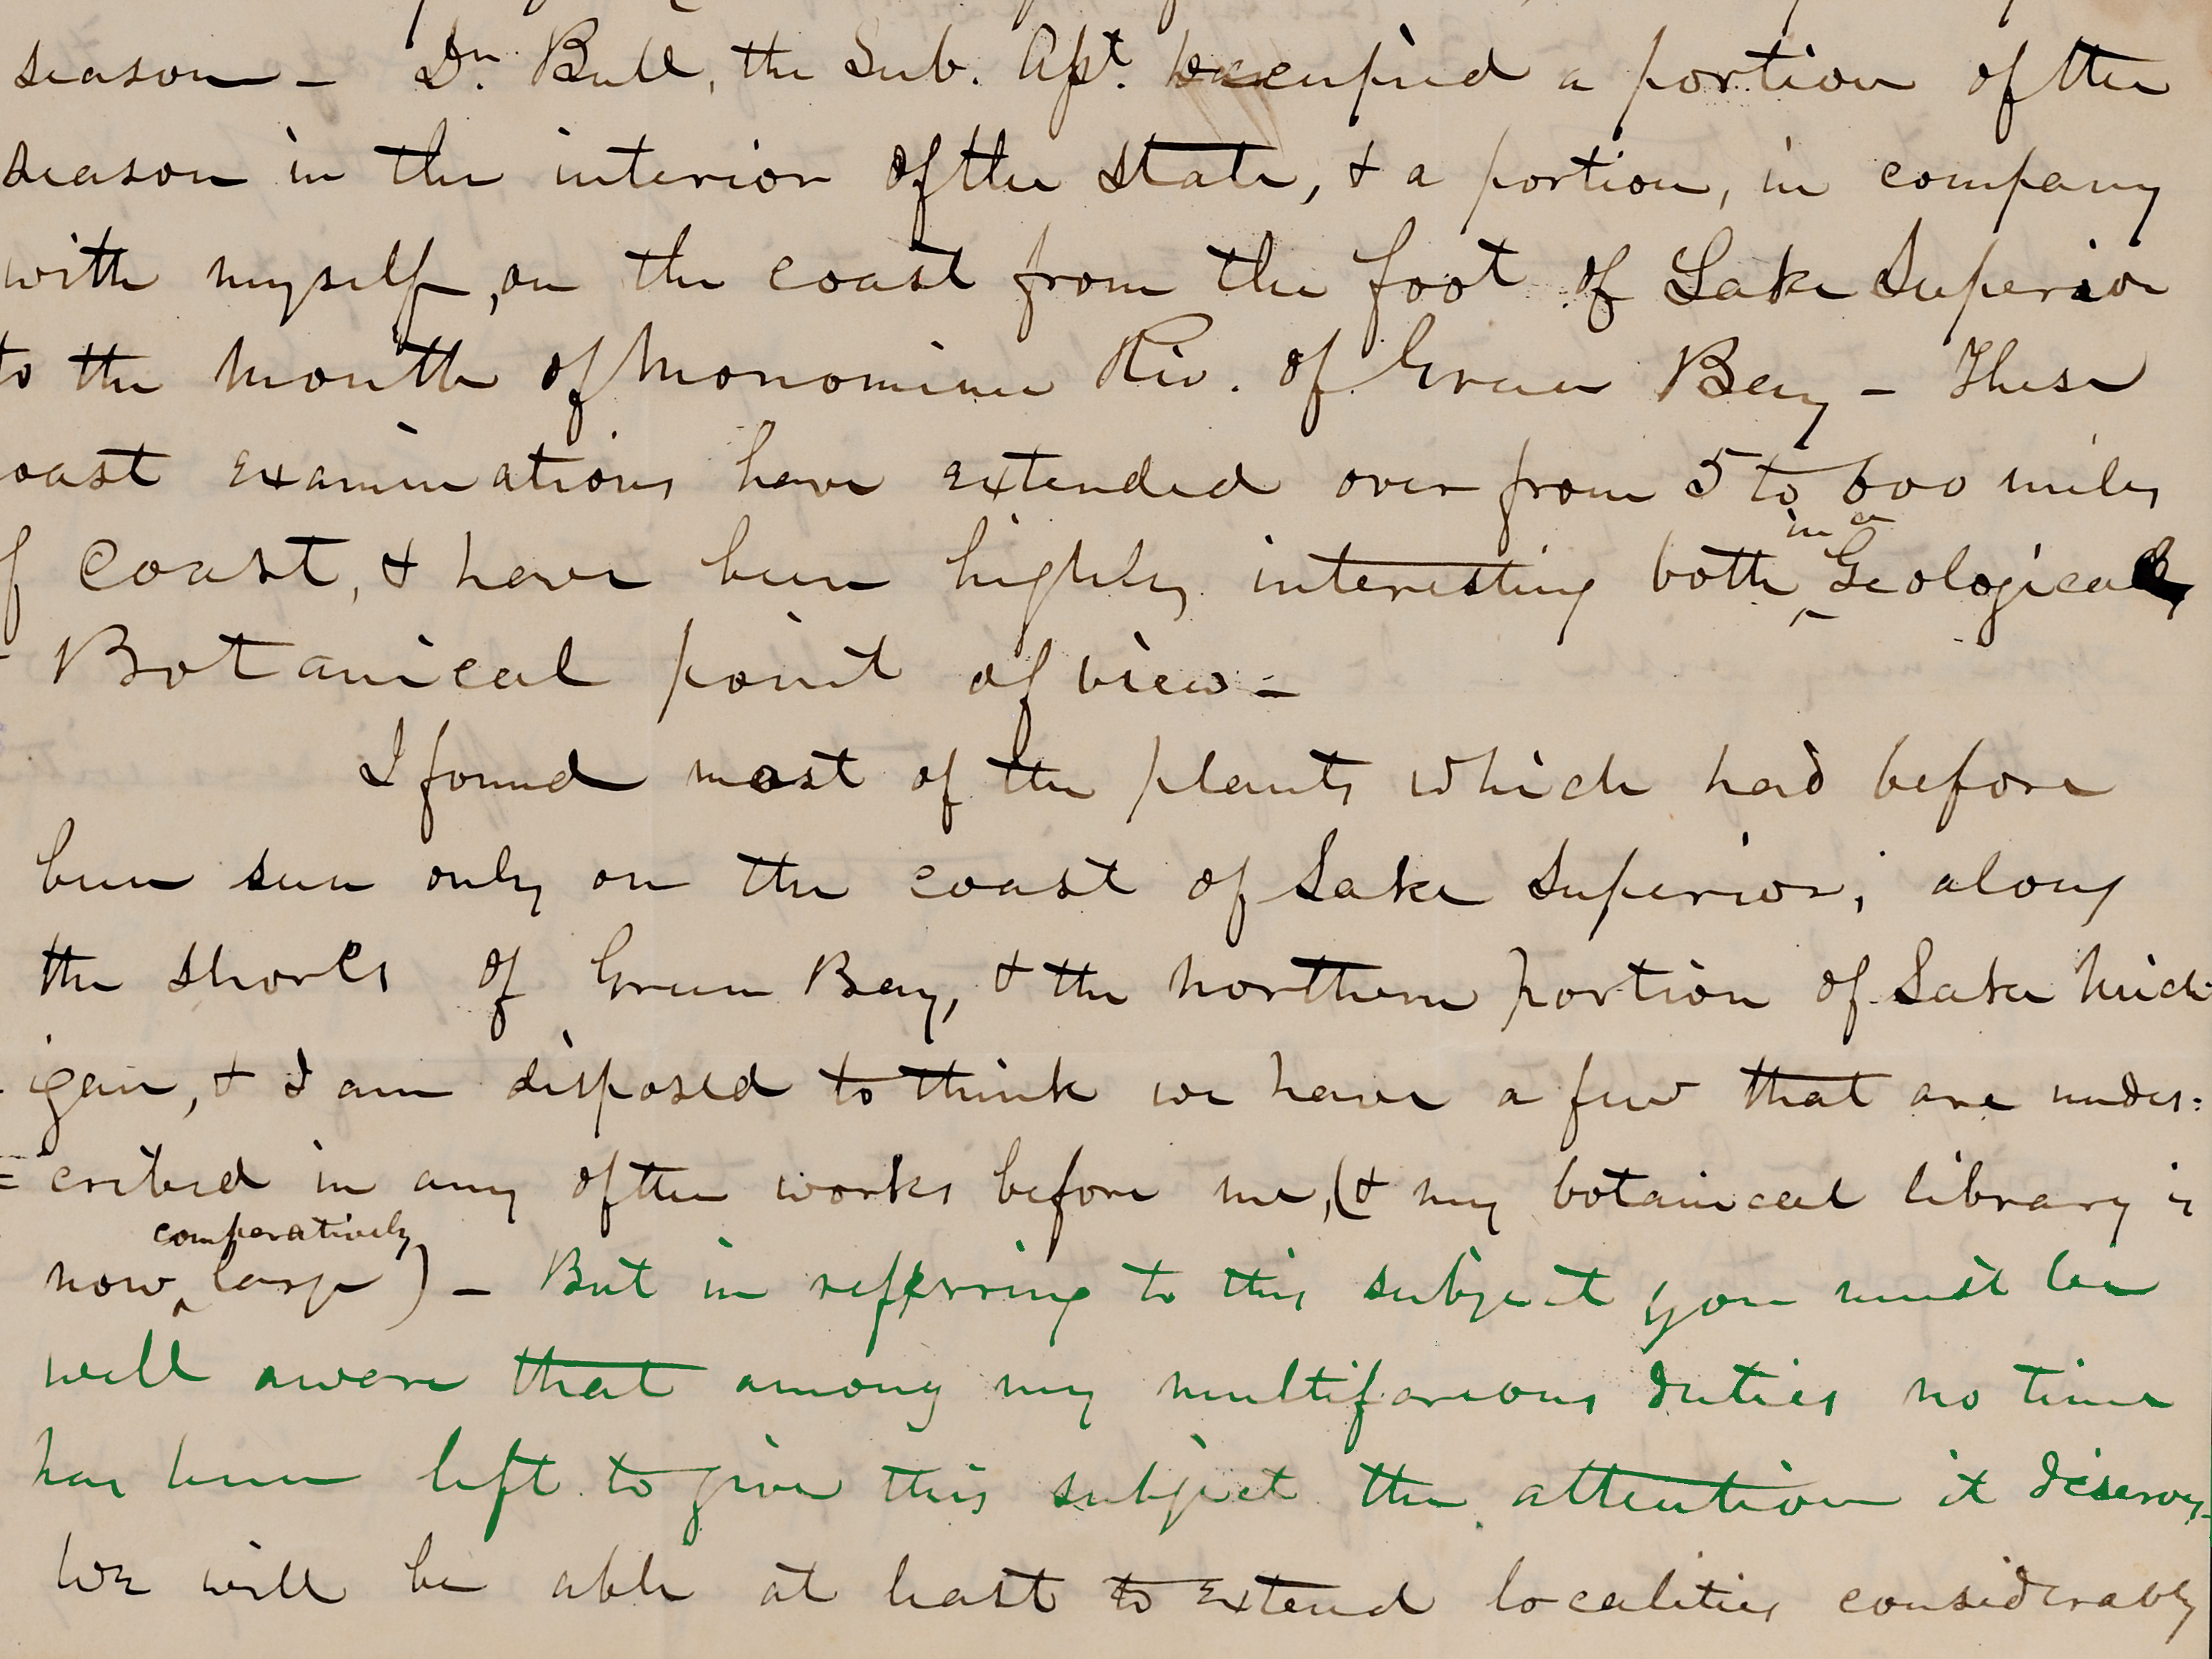 season – Dr. Bull, the Sub. Asst. occupied a portion of the
season in the interior of the state, & a portion, in company
with myself, on the coast from the foot of Lake Superior
to the mouth of Monominee Riv. of Green Bay – These
oast examinations have extended over from 5 to 600 miles
f coast, & have been highly interesting both in a Geological
Botanical point of view –
I found most of the plants which had before
been seen only on the coast of Lake Superior, along
the shores of Green Bay, & the northern portion of Lake Mich
-igan, & I am disposed to think we have a few that are undes=
=cribed in any of the works before me, (& my botanical library is
now comparatively large) – But in referring to this subject you must be
well aware that among my multifarious duties no time
has been left to give this subject the attention it deserves –
We will be able at least to extend localities considerably